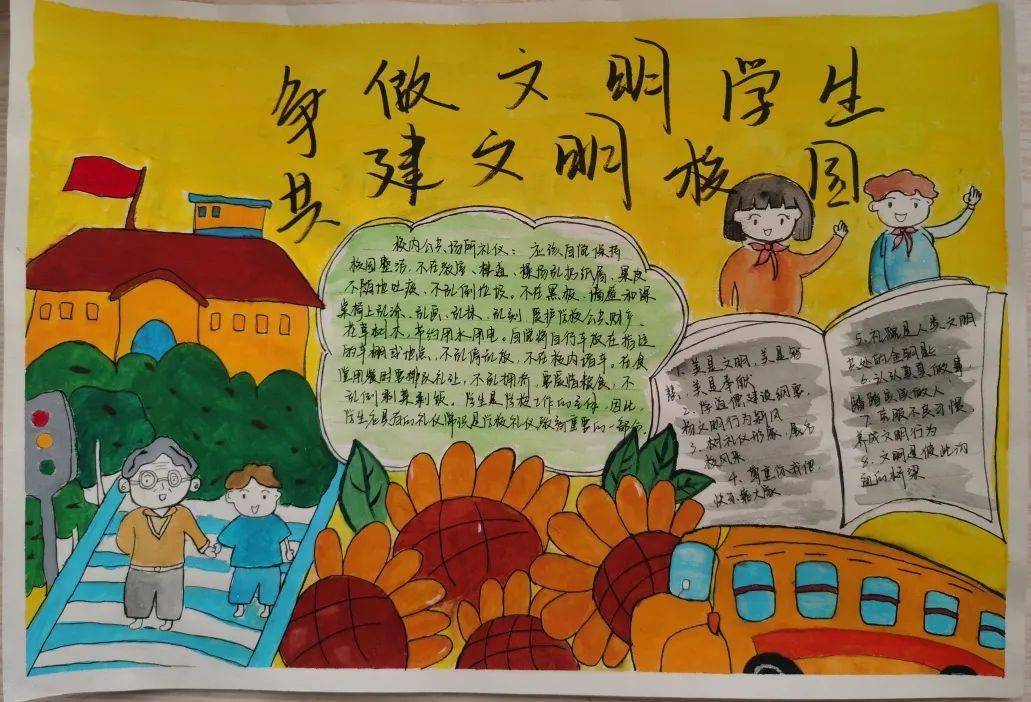 争做文明学生
共建文明校园
校内公共场所礼仪：应该自觉保持
校园整洁，不在教室、楼道、操场乱扔纸屑、果皮
不随地吐痰、不乱倒垃圾。不在黑板、墙壁和课
桌椅上乱涂、乱画、乱抹、乱刻，爱护学校公共财产、
花草树木，节约用水用电。自觉将自行车放在指定
的车棚或地点，不乱停乱放，不在校内骑车。在食
堂用餐时要排队礼让，不乱拥挤，要爱惜粮食，不
乱倒剩菜剩饭。学生是学校工作的主体，因此，
学生应具有的礼仪常识是学校礼仪教育重要的一部分。
1. 美是文明，美是
美是奉献
2. 学道德建设纲要，
树文明行为新风
3. 树礼仪形象，展名
校风采
4. 尊重你我他
快乐靠大家
5. 礼貌是人类文明
共处的金钥匙
6. 认认真真做事，
踏踏实实做人
7. 克服不良习惯，
养成文明行为
8. 文明是彼此沟
通的桥梁